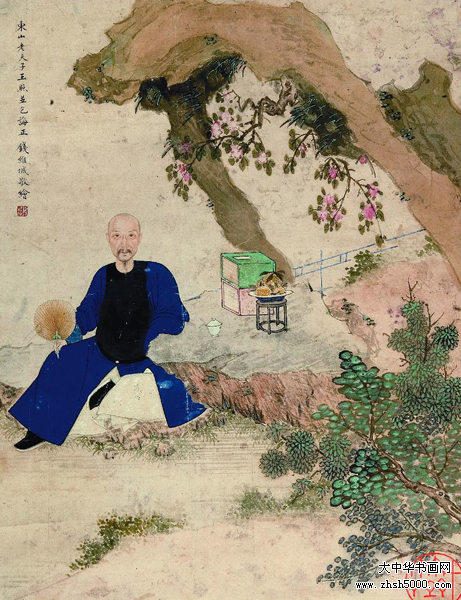 東山老夫子玉照並乞誨正 錢維城敬繪
大中华书画网
www.zhsh5000.com